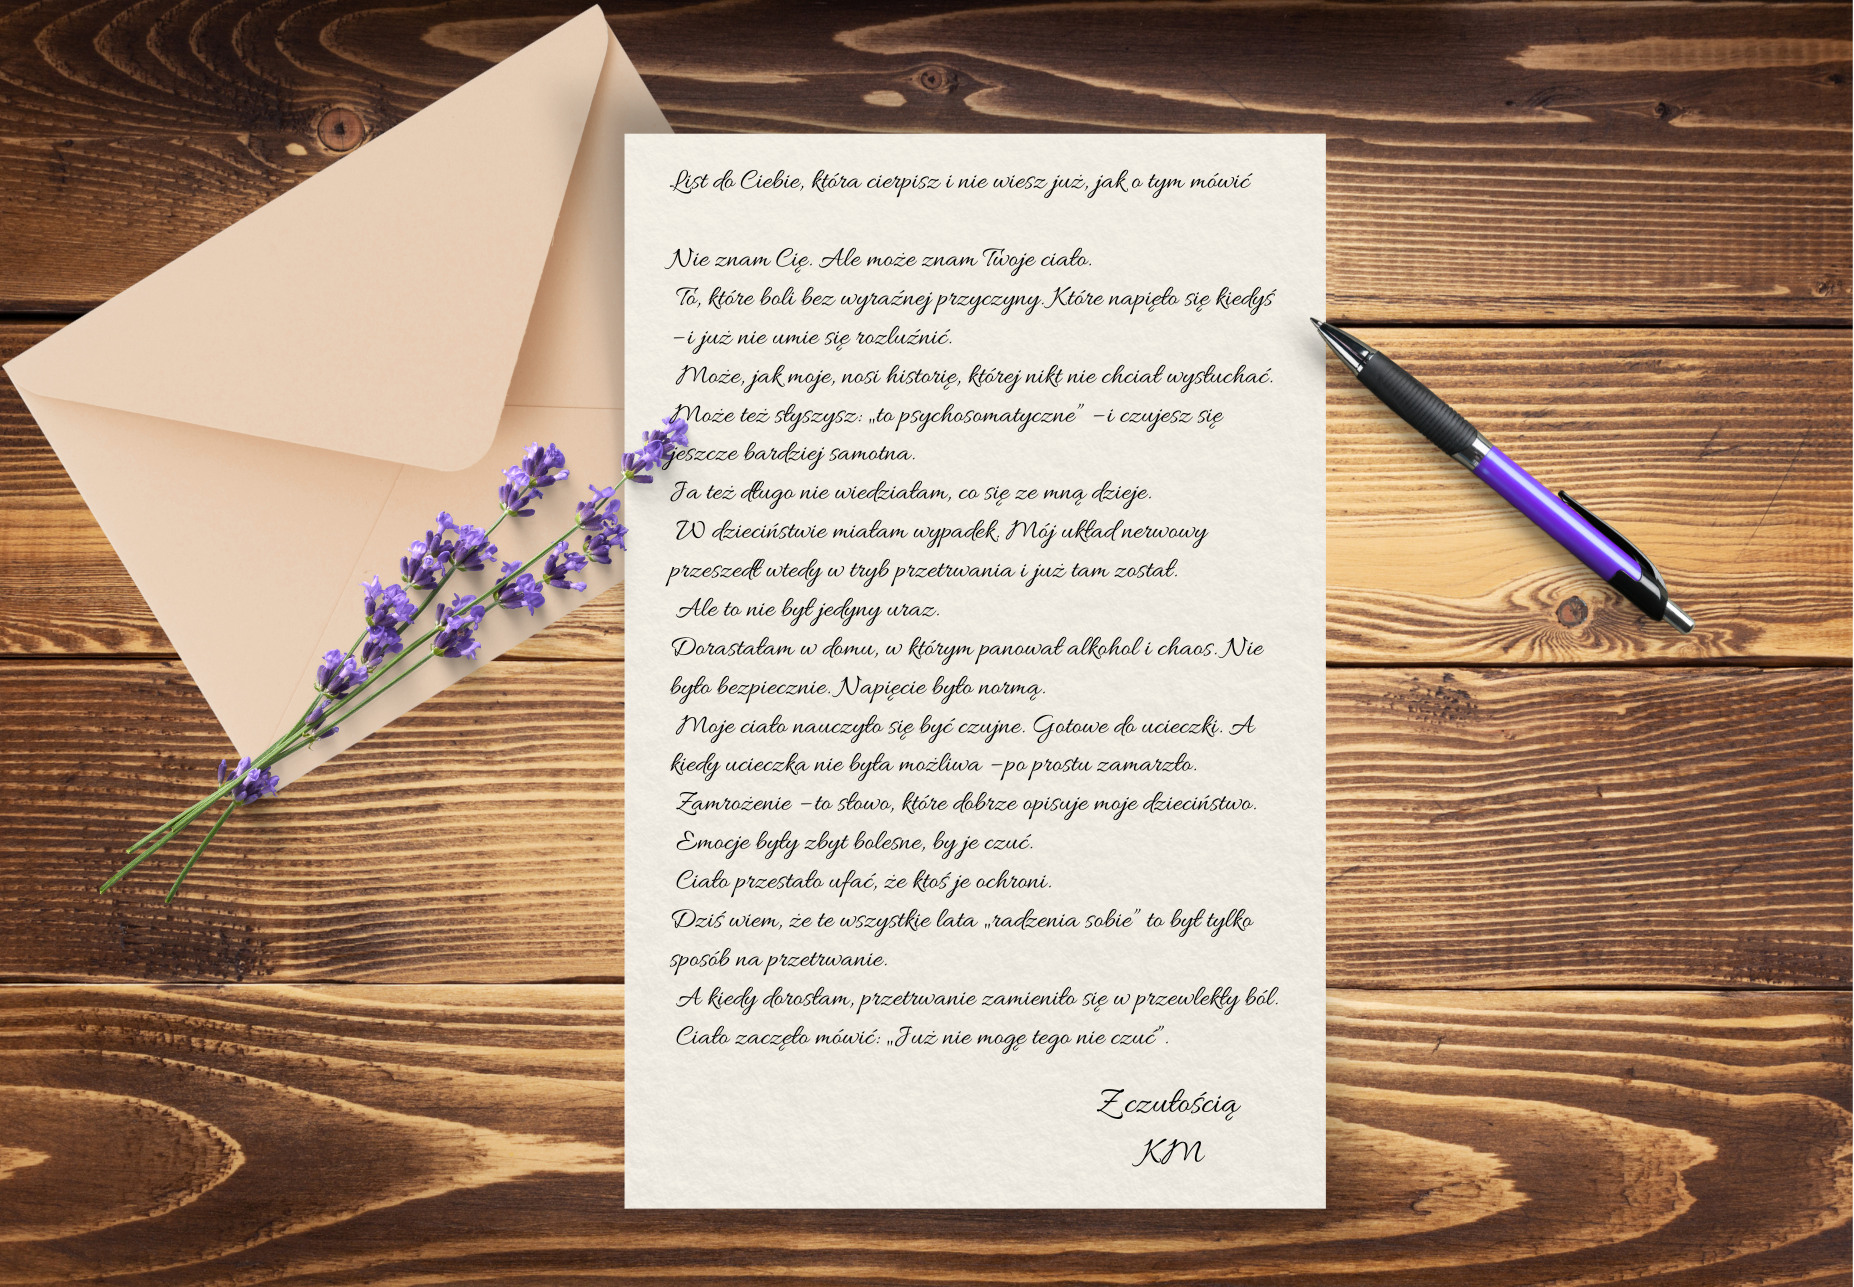 List do Ciebie, która cierpisz i nie wiesz już, jak o tym mówić
Nie znam Cię. Ale może znam Twoje ciało.
To, które boli bez wyraźnej przyczyny. Które napięło się kiedyś
– i już nie umie się rozluźnić.
Może, jak moje, nosi historię, której nikt nie chciał wysłuchać.
Może też słyszysz: „to psychosomatyczne” – i czujesz się
jeszcze bardziej samotna.
Ja też długo nie wiedziałam, co się ze mną dzieje.
W dzieciństwie miałam wypadek. Mój układ nerwowy
przeszedł wtedy w tryb przetrwania i już tam został.
Ale to nie był jedyny uraz.
Dorastałam w domu, w którym panował alkohol i chaos. Nie
było bezpiecznie. Napięcie było normą.
Moje ciało nauczyło się być czujne. Gotowe do ucieczki. A
kiedy ucieczka nie była możliwa – po prostu zamarzło.
Zamrożenie – to słowo, które dobrze opisuje moje dzieciństwo.
Emocje były zbyt bolesne, by je czuć.
Ciało przestało ufać, że ktoś je ochroni.
Dziś wiem, że te wszystkie lata „radzenia sobie” to był tylko
sposób na przetrwanie.
A kiedy dorosłam, przetrwanie zamieniło się w przewlekły ból.
Ciało zaczęło mówić: „Już nie mogę tego nie czuć”.
Z czułością
KM